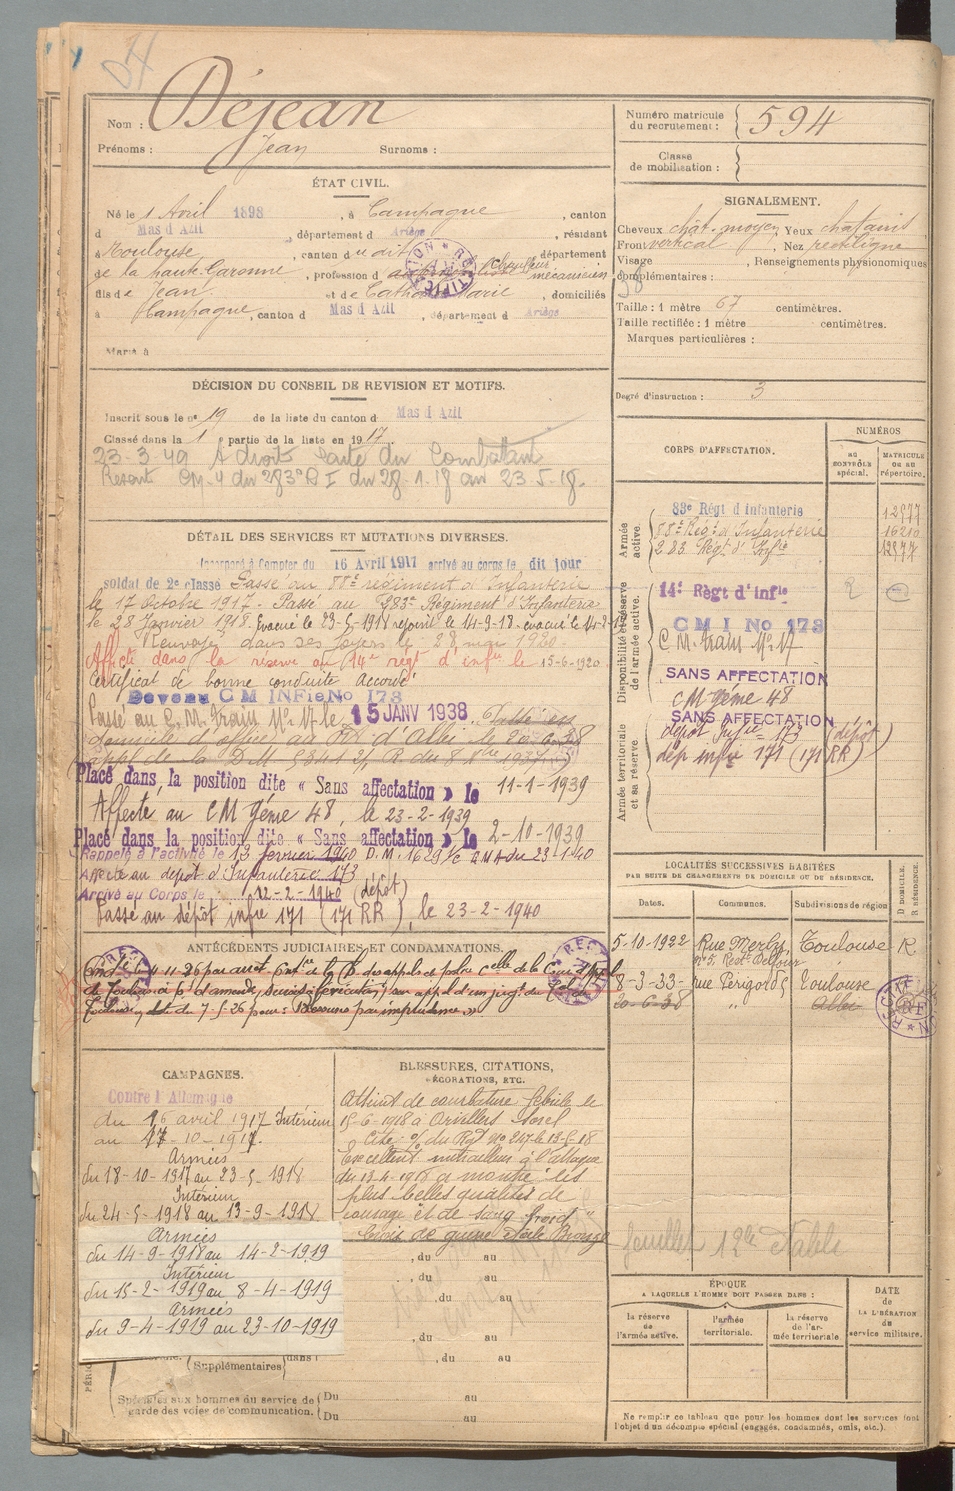 Nom : Déjean
Prénoms : Jean Surnoms :
Numéro matricule du recrutement : 594
Classe de mobilisation :
ÉTAT CIVIL.
Né le 1 Avril 1898, à Campagne, canton
d Mas d Azil, département d Ariège, résidant
à Toulouse, canton du dit, département
de la haute-Garonne, profession d mécanicien
fils de Jean et de Marie, domiciliés
à Campagne, canton d Mas d Azil, département d Ariège
Marié à
SIGNALEMENT.
Cheveux chât-moyen Yeux chatains
Front vertical, Nez rectiligne
Visage , Renseignements physionomiques
complémentaires :
Taille : 1 mètre 67 centimètres.
Taille rectifiée : 1 mètre centimètres.
Marques particulières :
Degré d'instruction : 3
DÉCISION DU CONSEIL DE REVISION ET MOTIFS.
Inscrit sous le n° 19 de la liste du canton d Mas d Azil
Classé dans la 1 e partie de la liste en 1917.
23-3-49 A droit Carte du Combattant
du 283e R I du 28-1-18 au 23-5-18.
CORPS D'AFFECTATION.
NUMÉROS
au contrôle spécial.
MATRICULE ou au répertoire.
Armée active.
83e Régt d infanterie 12977
88e Régt d'Infanterie 16210
283 Régt d' Infie
Disponibilité et réserve de l'armée active.
14e Règt d'infie
C M I No 173
C. M. train No 17
SANS AFFECTATION
CM Génie 48
SANS AFFECTATION
Armée territoriale et sa réserve
dépôt Infie 173 (dépôt)
dép infie 171 (171 RR)
DÉTAIL DES SERVICES ET MUTATIONS DIVERSES.
Incorporé à Compter du 16 Avril 1917 arrivé au corps le dit jour
soldat de 2e classe Passé au 88e régiment d'Infanterie
le 17 Octobre 1917. Passé au 283e Régiment d'Infanterie
le 28 Janvier 1918. Evacué le 23-5-1918 rejoint le 14-9-18. évacué le
Renvoyé dans ses foyers le 28 mai 1920
Affecté dans la réserve au 14e régt d'infie le 15-6-1920.
Certificat de bonne conduite Accordé
Devenu C M INFie No 173
Passé au C. M. train No 17 le 15 JANV 1938. Passé en
domicile d'office au d'Albi le 20-6-38
Placé dans la position dite « Sans affectation » le 11-1-1939
Affecté au CM Génie 48, le 23-2-1939
Placé dans la position dite « Sans affectation » le 2-10-1939
Rappelé à l'activité le 13 février 1940 D.M. 1629 du 23-1-40
Affecté au dépôt d'Infanterie 173
Arrivé au Corps le 12-2-1940 (dépôt)
Passé au dépôt infie 171 (171 RR), le 23-2-1940
LOCALITÉS SUCCESSIVES HABITÉES
PAR SUITE DE CHANGEMENTS DE DOMICILE OU DE RÉSIDENCE.
Dates. Communes. Subdivisions de région D DOMICILE. R RÉSIDENCE.
5-10-1922 Rue Merly Toulouse R
8-3-33 rue Périgold 5 Toulouse
20-6-38 " Albi
ANTÉCÉDENTS JUDICIAIRES ET CONDAMNATIONS.
"Blessures par imprudence"
CAMPAGNES.
Contre l Allemagne
du 16 avril 1917 Intérieur
au 17-10-1917.
Armées
du 18-10-1917 au 23-5-1918
Intérieur
du 24-5-1918 au 13-9-1918
Armées
du 14-9-1918 au 14-2-1919
Intérieur
du 15-2-1919 au 8-4-1919
Armées
du 9-4-1919 au 23-10-1919
Supplémentaires dans :
Spéciales aux hommes du service de garde des voies de communication. Du au
Du au
BLESSURES, CITATIONS,
DÉCORATIONS, ETC.
Atteint de courbature fébrile le
15-6-1918 à Orvillers Sorel
Cité du Rgt No 247 le 13-5-18
Excellent mitrailleur à l'attaque
du 13-4-1918 a montré les
plus belles qualités de
courage et de sang froid"
Croix de guerre Etoile Bronze
, du au
, du au
, du au
, du au
, du au
feuillet
ÉPOQUE
A LAQUELLE L'HOMME DOIT PASSER DANS :
la réserve de l'armée active.
l'armée territoriale.
la réserve de l'armée territoriale.
DATE de LA LIBÉRATION du service militaire.
Ne remplir ce tableau que pour les hommes dont les services font
l'objet d'un décompte spécial (engagés, condamnés, omis, etc.).